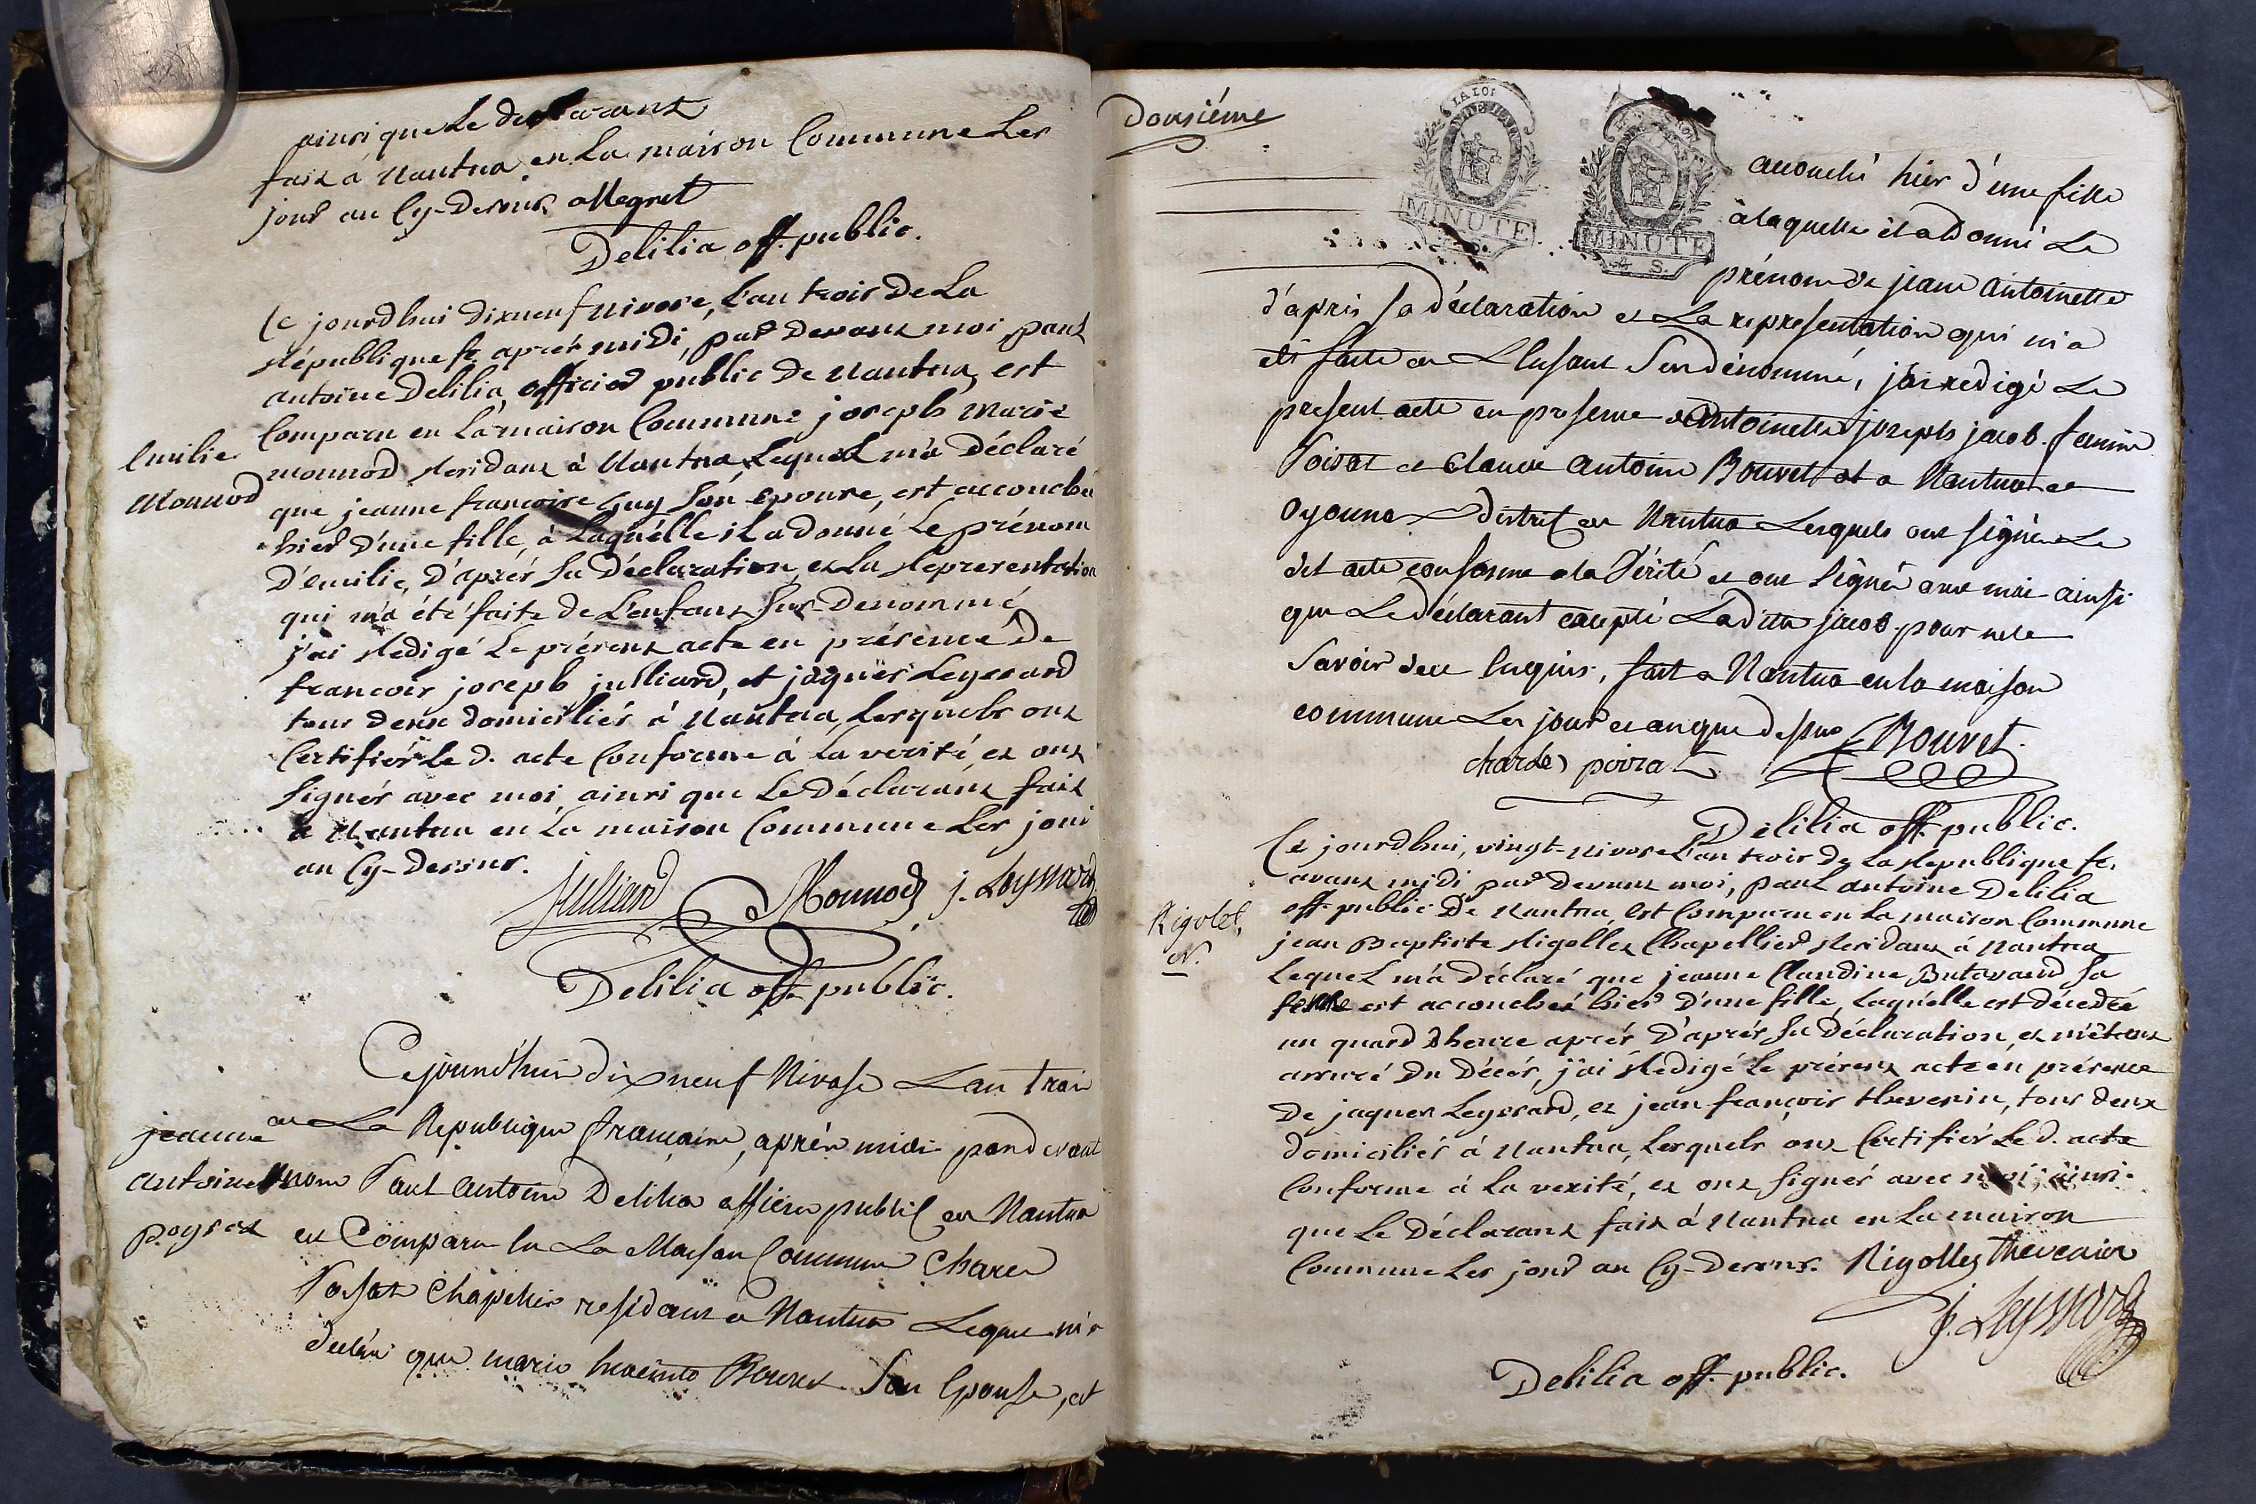 ainsi que le declarant
fait à Nantua en la maison Commune les
jour an Cy-Dessus. allegret
Delilia off. public.
Ce jourdhui dixneuf nivose, l'an trois de la
République fe. aprés midi, par devant moi, paul
antoine Delilia officier public de nantua, est
Comparu en la maison Commune joseph marie
Emilie
Monnod
monnod résidant à Nantua, lequel m'a déclaré
que jeanne francoise Guy son épouse, est accouchée
hier d'une fille, à laquelle il a donné le prénom
d'emilie, d'aprés sa Déclaration, et la representation
qui m'a été faite de l'enfant sus-denommé
j'ai rédigé le présent acte en présence de
francois joseph julliard, et jaques Leyssard
tous deux domiciliés à Nantua, lesquels ont
Certifiés le d. acte Conforme à la verité, et ont
signés avec moi ainsi que le Déclarant fait
à Nantua en la maison Commune les jour
an Cy-Dessus.
julliard Monnod j. Leyssard
Delilia off. public.
Cejourd'hui dix neuf Nivose L'an trois
de La Republique francaine, aprés midi pardevant
jeanne
antoinette
poysat
nous Paul antoine Delilia officier public de Nantua
est Comparu en La Maison Commune Charles
Poisat Chapelier residant a Nantua Lequel m'a
declaré que marie hiacinte Bouvet Son Epouse, est
Dousiéme
LA LOI
MINUTE
MINUTE
4 S.
accouché hier d'une fille
a laquelle il a donné Le
prénom de jeane antoinette
d'aprés sa déclaration et La representation qui m'a
été faite de L'enfant Susdénommé, j'ai redigé Le
present acte en presence d'antoinette joseph jacob femme
Poisat et Claude antoine Bouvet dt a Nantua et
Oyonna District de Nantua Lesquels ont signé Le
dit acte conforme a la Vérité et ont Signé avec moi ainsi
que Le déclarant excepté Ladite jacob pour ne le
savoir de ce Enquis, fait a Nantua en la maison
commune Les jour et an que dessus Bouvet
charle poizat
Delilia off. public.
Ce jourdhui, vingt-nivose l'an trois de la République fe.
avant midi, par devant moi, paul antoine Delilia
off. public de nantua, est Comparu en la maison Commune
Rigolet,
N.
jean Baptiste Rigollet Chapellier résidant à Nantua
lequel m'a déclaré que jeanne Claudine Butavand sa
femme est accouchée hier d'une fille, laquelle est décedée
un quard d'heure aprés d'aprés sa Déclaration, et m'étant
assuré du Décés, j'ai rédigé le présent acte en présence
de jaques Leyssard, et jean françois thevenin, tous deux
domiciliés à Nantua, lesquels ont Certifiés le d. acte
Conforme à la verité, et ont signés avec moi, ainsi
que le Déclarant fait à Nantua en la maison
Commune les jour an Cy-Dessus. Rigollet thevenin
j. Leyssard
Delilia off. public.